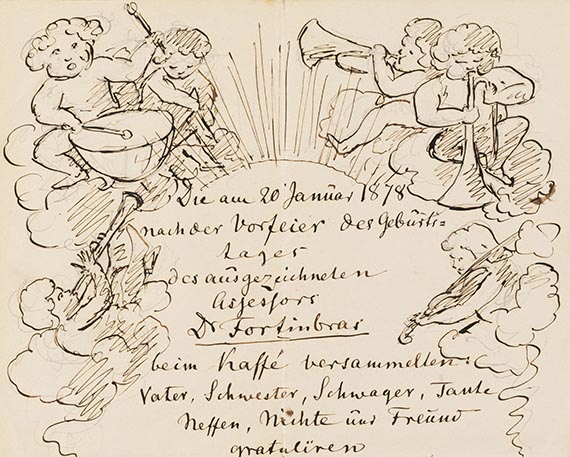 Die am 20 Januar 1878
nach der Vorfeier des Gebúrts-
tages
des ausgezeichneten
Assessors
Dr Fortinbras
beim Kaffé versammelten:
Vater, Schwester, Schwager, Tante
Neffen, Nichte und Freund
gratuliren